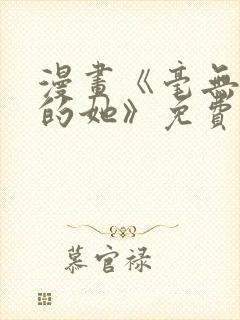 漫畫《毫無
的她》免費
慕官禄